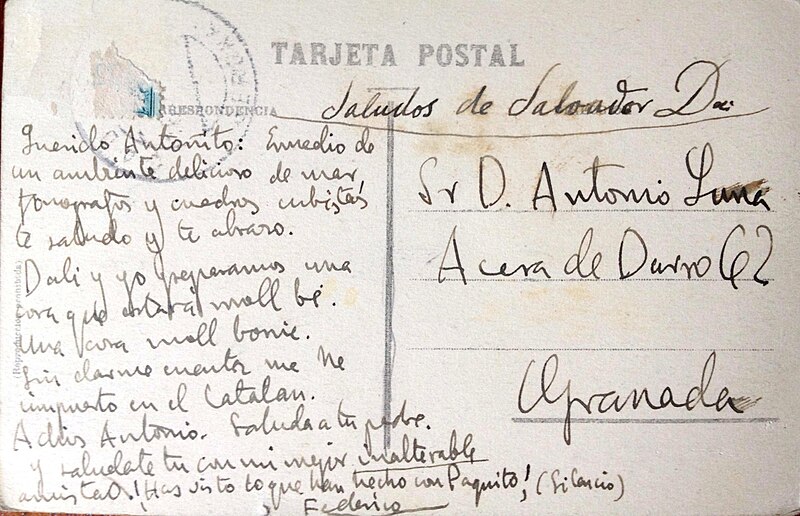 TARJETA POSTAL
RRESPONDENCIA
Saludos de Salvador Dalí
Querido Antoñito: Enmedio de
un ambiente delicioso de mar,
fonografos y cuadros cubistas
te saludo y te abrazo.
Dalí y yo preparamos una
cosa que estará moll bé.
Una cosa moll bonic.
Sin darme cuenta me he
impuesto en el Catalan.
Adios Antonio. Saluda a tu padre.
y saludate tu con mi mejor inalterable
amistad. ¡Has visto lo que han hecho con Paquito! (Silencio)
Federico
Sr D. Antonio Luna
Acera de Darro 62
Granada
(Reproducción prohibida)